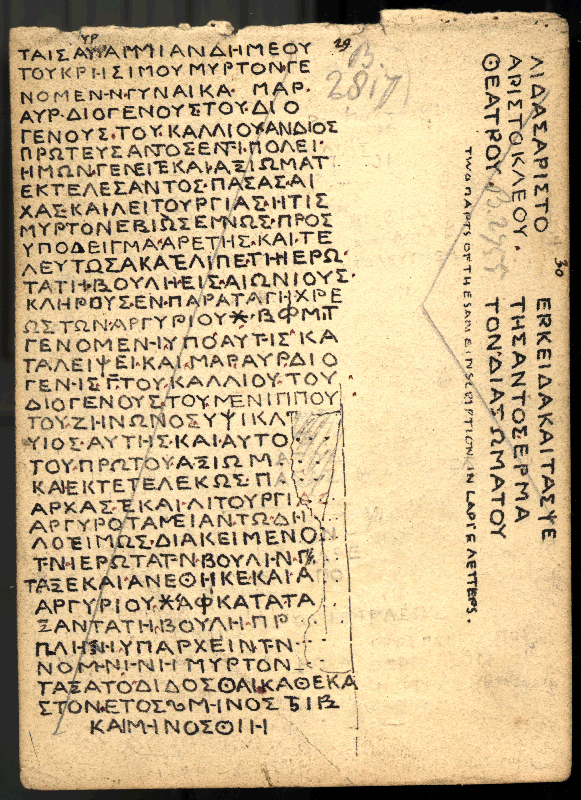 29
B.
2817
ΥΡ
ΤΑΙΣΑΥΑΜΜΙΑΝΔΗΜΕΟΥ
ΤΟΥΚΡΗΣΙΜΟΥΜΥΡΤΟΝ·ΓΕ
ΝΟΜΕΝ·Ν·ΓΥΝΑΙΚΑ· ΜΑΡ.
ΑΥΡ·ΔΙΟΓΕΝΟΥΣΤΟΥ·ΔΙΟ
ΓΕΝΟΥΣ·ΤΟΥ·ΚΑΛΛΙΟΥΑΝΔΙΟΣ
ΠΡΩΤΕΥΣΑΝΤΟΣΕΝΤ·ΠΟΛΕΙ·
ΗΜΩΝ·ΓΕΝΕΙΕΚΑΙ·ΑΞΙΩΜΑΤ
ΕΚΤΕΛΕΣΑΝΤΟΣ·ΠΑΣΑΣ·ΑΙ
ΧΑΣ·ΚΑΙΛΕΙΤΟΥΡΓΙΑΣ·ΗΤΙΣ
ΜΥΡΤΟΝΕΒΙΩΣΕΜΝΩΣ·ΠΡΟΣ
ΥΠΟΔΕΙΓΜΑΑΡΕΤΗΣ·ΚΑΙ·ΤΕ
ΛΕΥΤΩΣΑΚΑΤΕΛΙΠΕΤΗΙΕΡΩ·
ΤΑΤΗ·ΒΟΥΛΗΕΙΣΑΙΩΝΙΟΥΣ·
ΚΛΗΡΟΥΣΕΝ·ΠΑΡΑΤΑΓΗΧΡΕ
ΩΣΤΩΝΑΡΓΥΡΙΟΥ·Ж·ΒΦΜΤ
ΓΕΝΟΜΕΝ·Ι·ΥΠΟΑΥΤΙΣ·ΚΑ
ΤΑΛΕΙΨΕΙ·ΚΑΙΜΑΡΑΥΡΔΙΟ
ΓΕΝ·ΙΣΓΤΟΥΚΑΛΛΙΟΥ·ΤΟΥ·
ΔΙΟΓΕΝΟΥΣ·ΤΟΥ·ΜΕΝΙΠΠΟΥ
ΤΟΥ·ΖΗΝΩΝΟΣΥΨΙΚΛ
ΥΙΟΣ·ΑΥΤΗΣ·ΚΑΙΑΥΤΟ
ΤΟΥΠΡΩΤΟΥΑΞΙΩΜΑ
ΚΑΙΕΚΤΕΤΕΛΕΚΩΣ·Π
ΑΡΧΑΣΕΚΑΙ·ΛΙΤΟΥΡΓΙΑΣ
ΑΡΓΥΡΟΤΑΜΕΙΑΝΤΩΔΗ
ΛΟΕΙΜΩΣ·ΔΙΑΚΕΙΜΕΝΟΝ
Τ·Ν·ΙΕΡΩΤΑΤ·Ν·ΒΟΥΛΙ·Ν·Π
ΤΑΞΕΚΑΙ·ΑΝΕΘΗΚΕ·ΚΑΙ·Α
ΑΡΓΥΡΙΟΥΖΑΦΚΑΤΑΤΑ
ΞΑΝΤΑΤΗ·ΒΟΥΛΗ·ΠΡ
ΠΛΗΝΙ·ΥΠΑΡΧΕΙΝ·Τ·Ν
ΝΟΜ·Ν·Ι·ΝΗ·ΜΥΡΤΟΝ
ΤΑΣΑΤΟΔΙΔΟΣΘΑΙ·ΚΑΘΕΚΑ
ΣΤΟΝΕΤΟΣ
ΚΑΙΜΗΝΟΣΘΙΗ
30
ΛΙΔΑΣΑΡΙΣΤΟ
ΑΡΙΣΤΟΚΛΕΟΥ.
ΘΕΑΤΡΟΥ
ΕΡΚΕΙΔΑΚΑΙΤΑΣΨΕ
ΤΗΣΑΝΤΟΣΕΡΜΑ
ΤΟΝΔΙΑΖΩΜΑΤΟΥ
TWO PARTS OF THE SAME INSCRIPTION IN LARGE LETTERS.